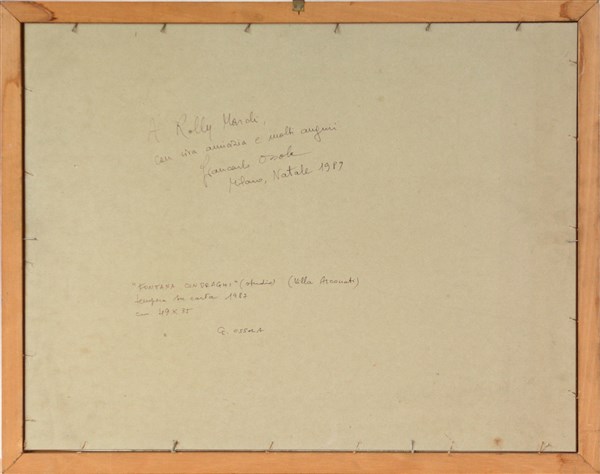 A Rolly Marchi,
con viva amicizia e molti auguri
Giancarlo Ossola
Milano, Natale 1987
"FONTANA CON DRAGHI" (studio) (Villa Arconati)
tempera su carta 1987
cm 49 x 35
G. OSSOLA